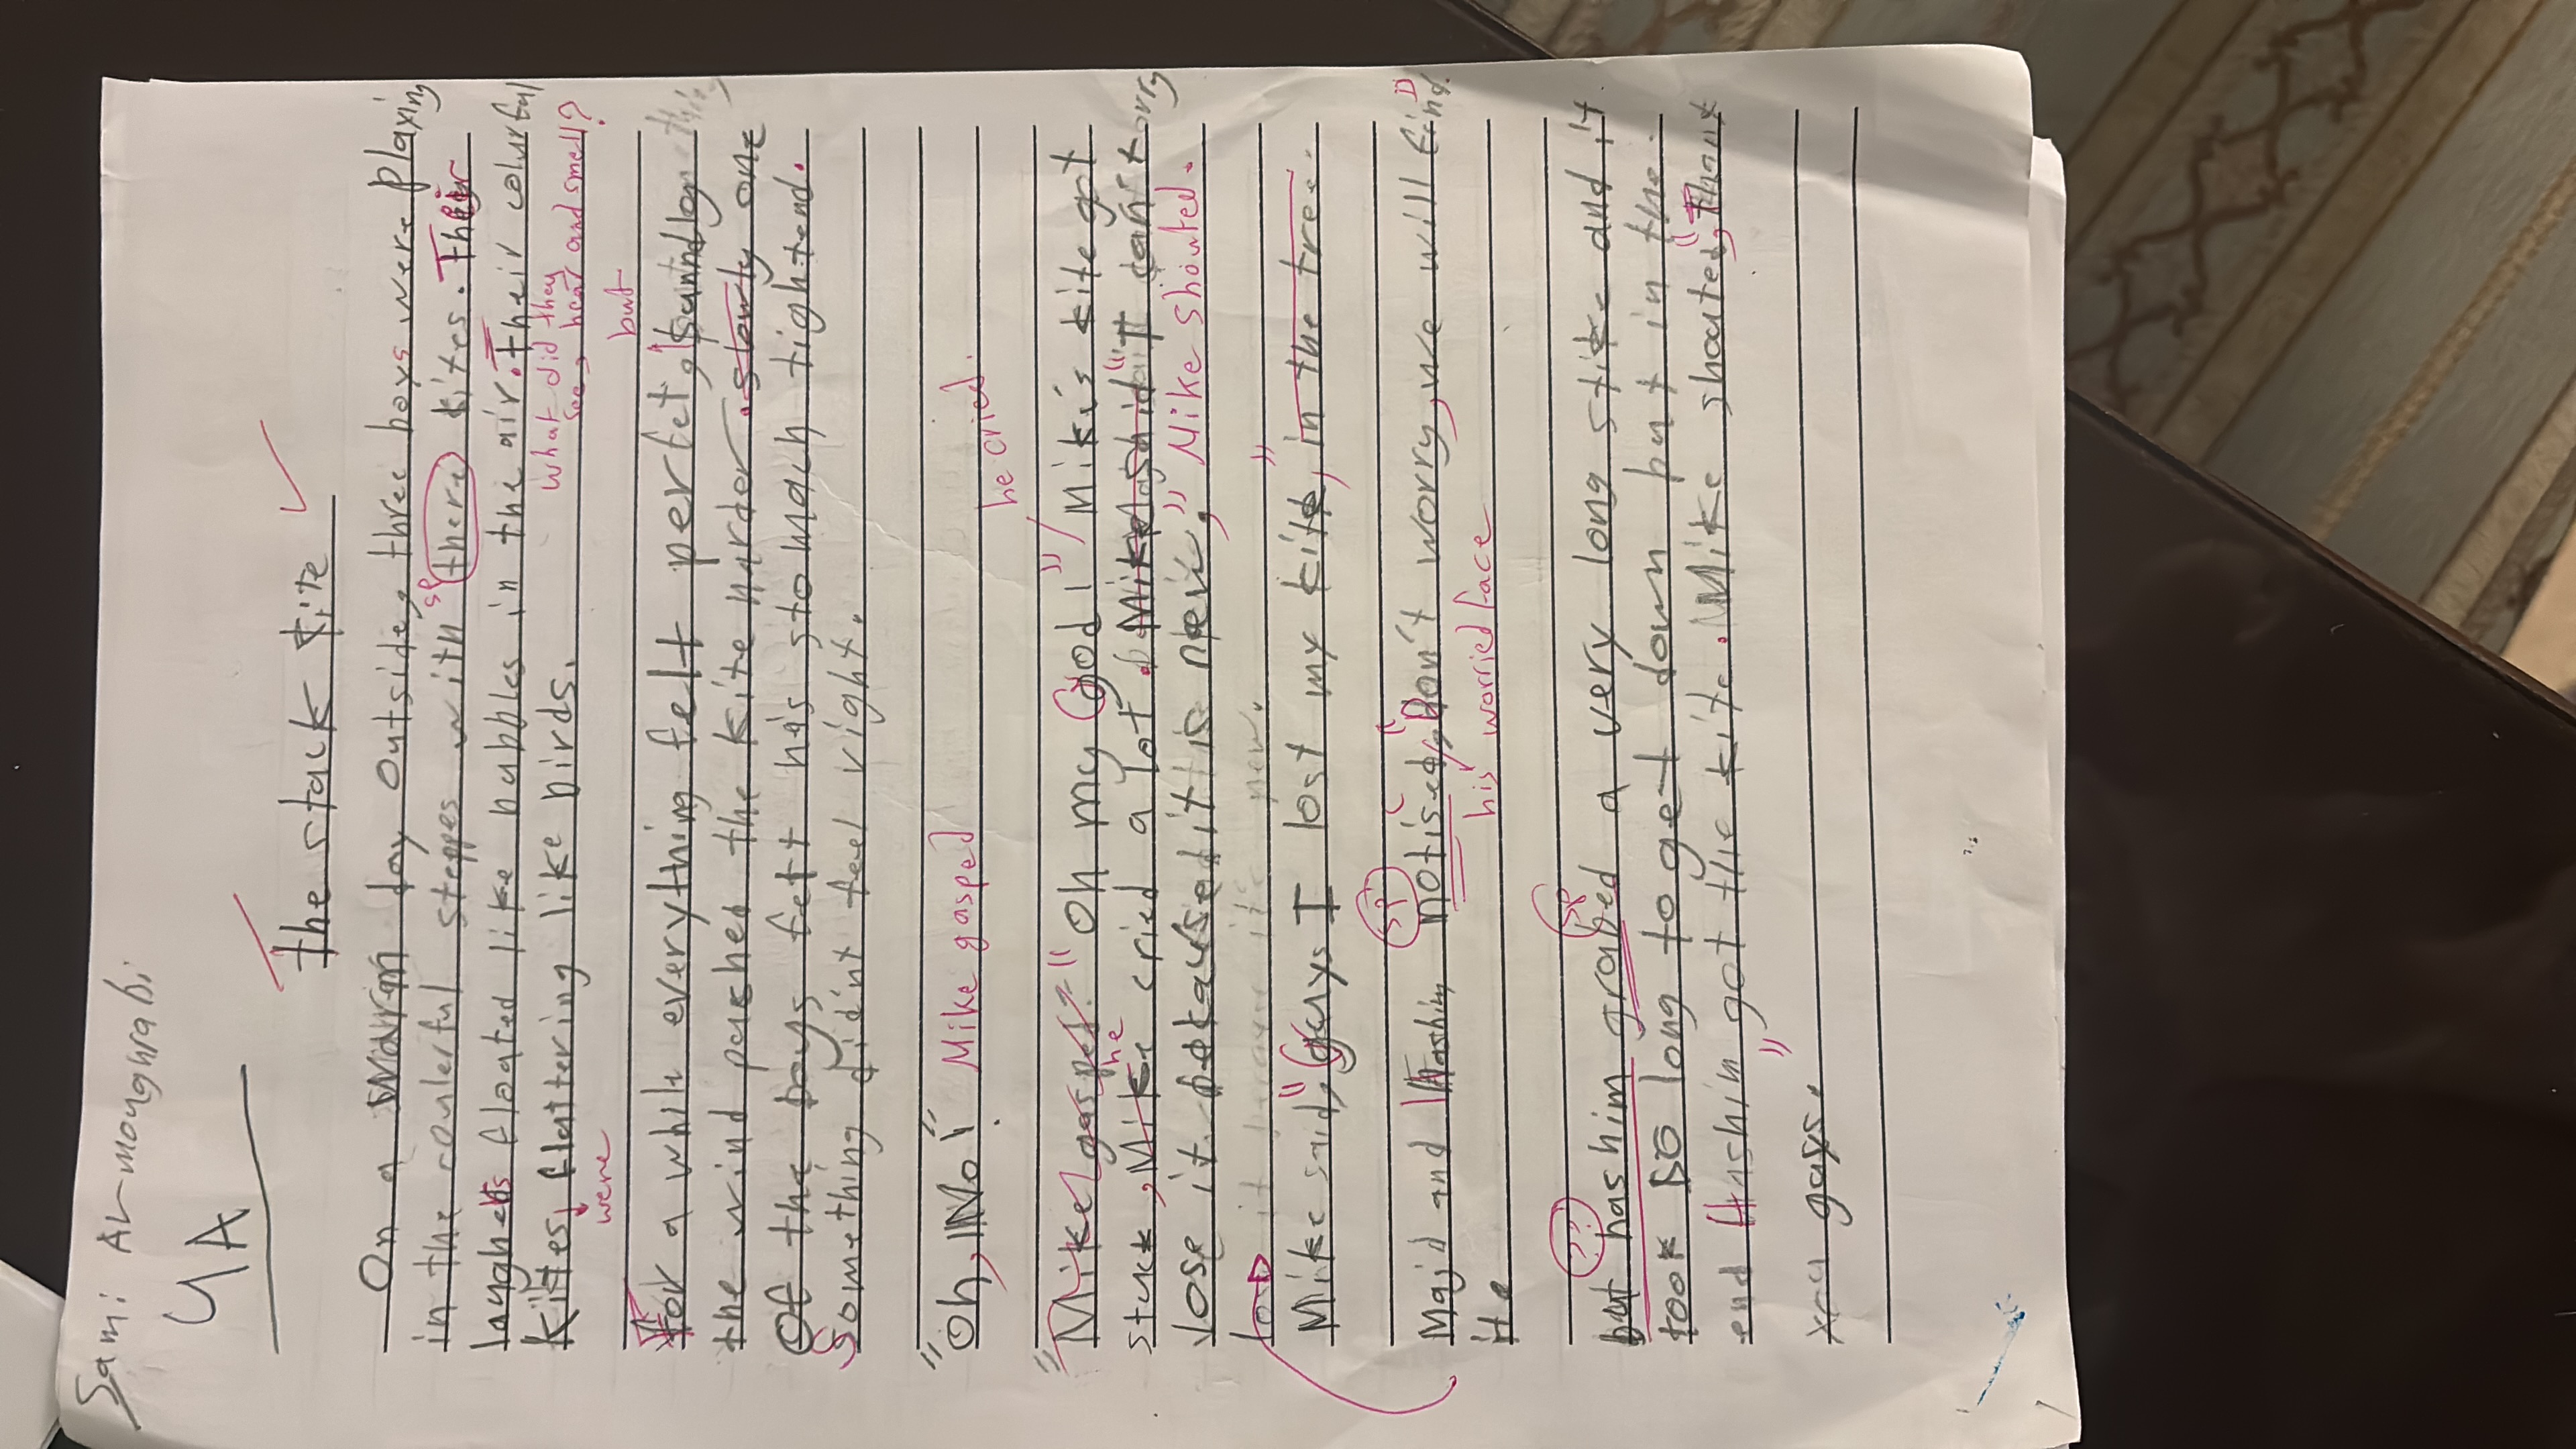 Sami AL-moughrabi
4A
The stack kite
On a warm day outside, three boys were playing
sp
in the coulerful steppes with there kites. Their
laughers floated like bubbles in the air. Their colurful
what did they
see, hear and smell?
kites, flattering like birds.
were
but
For a while everything felt perfect, something
the wind pushed the kite harder. slowly one
Of the boys felt his stomach tightend.
Something didnt feel right.
"Oh, No!" Mike gasped
he cried.
"Mike gasped." "Oh my God!" Mike's kite got
he
stuck, Mike cried a lot. Mike said "I can't
lose it because it is new," Mike shouted.
Mike said, "Guys I lost my kite," in the tree.
sp
Majid and Hashim notised, "Don't worry, we will find
his worried face
it.
sp
but hashim grabed a very long stike and it
took SO long to get down but in the
end Hashim got the kite. Mike shouted, "Thank
you guys.